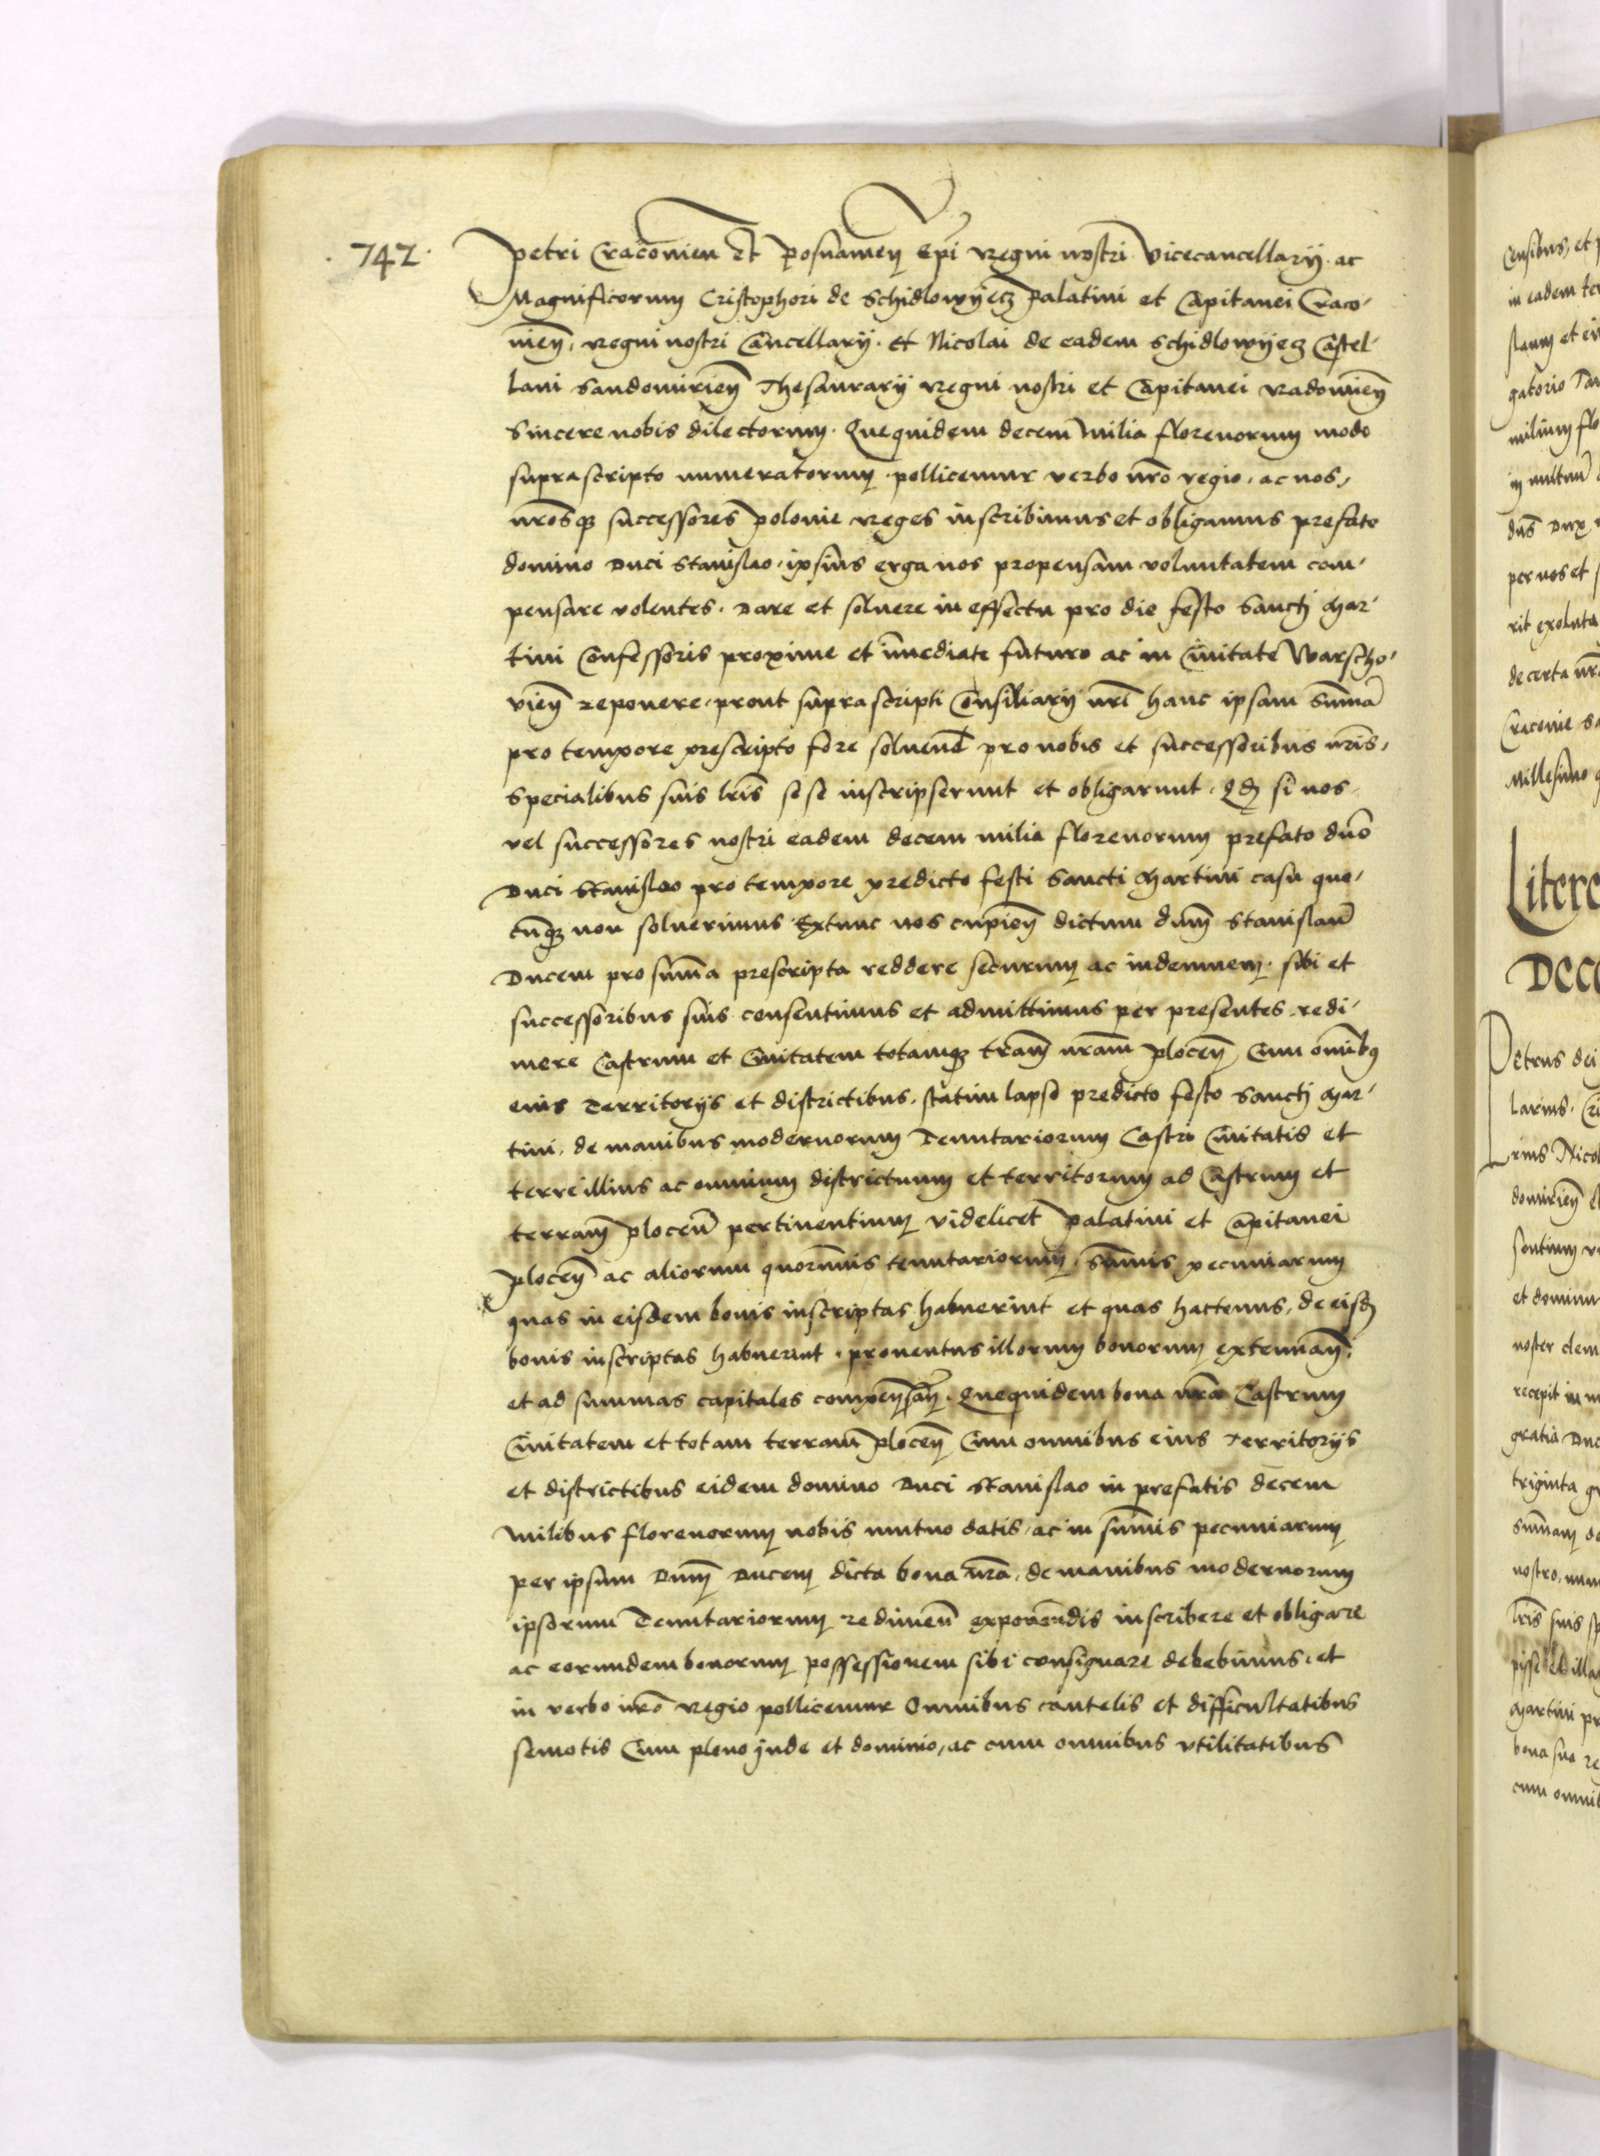 .742.
Petri Cracovien Et Posnanien Epi Regni nostri Vicecancellarij. ac
Magnificorum Cristophori de Schidlowyecz Palatini et Capitanei Craco,
vien, Regni nostri Cancellarij. Et Nicolai de eadem Schidlowyecz Castel,
lani Sandomirien Thesaurarij Regni nostri et Capitanei Radomien
Sincere nobis dilectorum. Quequidem decem milia florenorum modo
suprascripto numeratorum. pollicemur verbo nro regio, ac nos,
nrosq successores Polonie Reges inscribimus et obligamus prefato
domino Duci Stanislao, ipsius erga nos propensam voluntatem com,
pensare volentes. Dare et solvere in effectu pro die festo Sancti Mar,
tini Confessoris proxime et imediate futuro ac in Civitate Warscho,
vien reponere, prout suprascripti Consiliarij nri hanc ipsam Suma
pro tempore prescripto fore solvend pro nobis et successoribus nris,
Specialibus suis lris sese inscripserunt et obligarunt. Qd si nos
vel successores nostri eadem decem milia florenorum prefato dno
Duci Stanislao pro tempore predicto festi Sancti Martini casu quo,
cunq non solverimus Extunc nos cupien dictum dnm Stanislau
Ducem pro suma prescripta reddere securum ac indemnem. sibi et
successoribus suis consentimus et admittimus per presentes redi,
mere Castrum et Civitatem totamq tram nram Plocen, Cum omibq
eius Territorijs et districtibus, statim lapso predicto festo Sancti Mar,
tini, de manibus modernorum Tenutariorum Castri Civitatis et
terre illius ac omnium districtuum et territorum ad Castrum et
terram Plocen pertinentium videlicet Palatini et Capitanei
Plocen ac aliorum quorumvis tenutariorum, Sumis pecuniarum
quas in eisdem bonis inscriptas habuerint et quas hactenus, de eisd
bonis inscriptas habuerint. proventus illorum bonorum extenuan,
et ad summas capitales compensan. Quequidem bona nra Castrum
Civitatem et totam terram Plocen Cum omnibus eius Territorijs
et districtibus eidem domino Duci Stanislao in prefatis decem
milibus florenorum nobis mutuo datis, ac in sumis pecuniarum
per ipsum Dnm Ducem dicta bona nra, de manibus modernorum
ipsorum Tenutariorum redimen exponendis inscribere et obligare
ac eorundem bonorum possessionem sibi consignare debebimus, et
in verbo nro Regio pollicemur Omnibus cautelis et difficultatibus
semotis Cum pleno Jnde et dominio, ac cum omnibus vtilitatibus
Censibus, et
in eadem
gatorio
de certa nra
Cracovie
Millesimo
Litere
Petrus dei
larius.
rius Nicol
domirien
et dominu
noster clem
recepit in
gratia Duc
triginta
sumam
nostro,
lris suis
Martini
bona sua
cum omnib